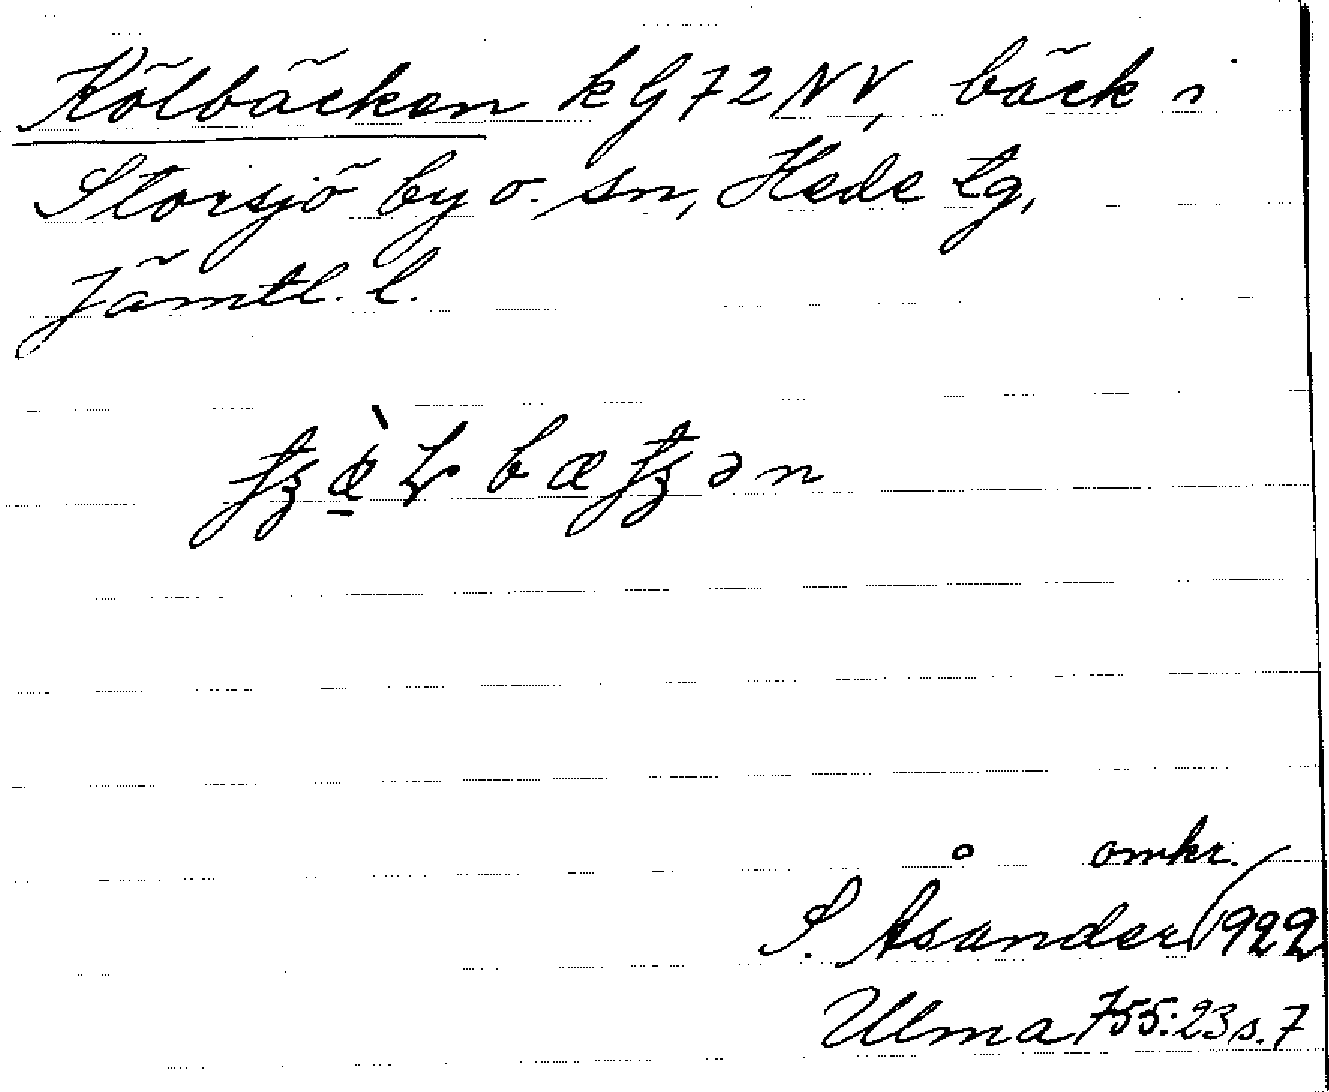 Kölbäcken k G 72 NV, bäck i
Storsjö by o. sn, Hede tg,
Jämtl. l.
omkr.
S. Åsander 1922
Ulma 755:23 s. 7